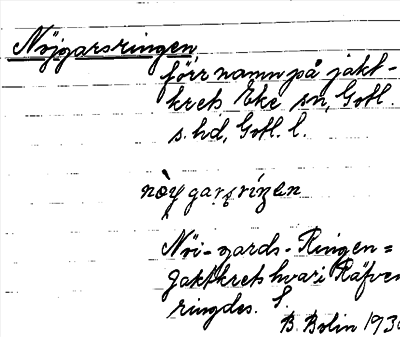 Nöjgarsringen
förr namn på jakt-
krets Eke sn, Gotl.
s. hd, Gotl. l.
nòy garsrízen
Nöi-gards-Ringen =
Jaktkrets hvari Räfven
ringdes. S.
B. Bolin 193